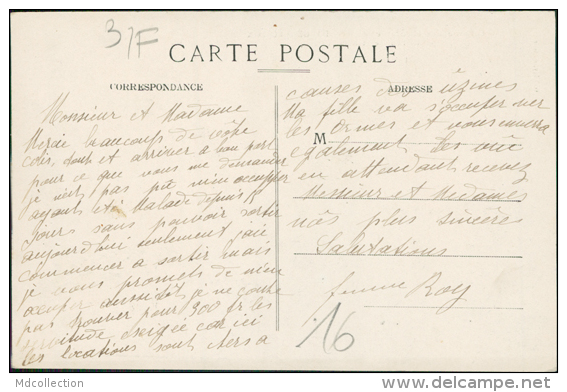 3/F
CARTE POSTALE
CORRESPONDANCE
ADRESSE
M
Monsieur et Madame
Merci beaucoups de votre
colis, dont et arriver a bon port
pour ce que vous me demander
je n'est pas pu m'en occuper
ayant été malade depuis 8
jours sans pouvoir sortir
aujourd'hui seulement j'aie
commencer a sortir mais
je vous promets de m'en
occuper aussitôt je ne compte
pas trouver pour 300 fr les
car ici
les locations sont chers a
causes des uzines
Ma fille va s'occuper ver
les Ormes et vous
egalement
en attendant recevez
Messieur et Medames
nôs plus sincères
Salutations
femme Roy
16
Mdcollection
www.delcampe.net